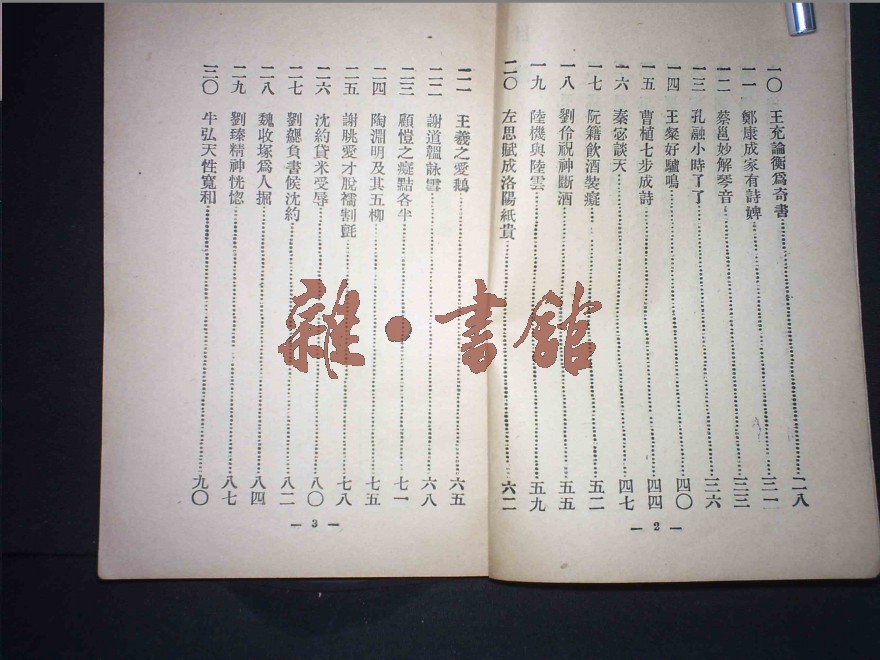 一〇 王充論衡爲奇書 二八
一一 鄭康成家有詩婢 三一
一二 蔡邕妙解琴音 三三
一三 孔融小時了了 三六
一四 王粲好驢鳴 四〇
一五 曹植七步成詩 四四
一六 秦宓談天 四七
一七 阮籍飲酒裝癡 五二
一八 劉伶祝神斷酒 五五
一九 陸機與陸雲 五九
二〇 左思賦成洛陽紙貴 六二
— 2 —
二一 王羲之愛鵝 六五
二二 謝道韞詠雪 六八
二三 顧愷之癡黠各半 七一
二四 陶淵明及其五柳 七五
二五 謝朓愛才脫襦割氈 七八
二六 沈約貸米受辱 八〇
二七 劉勰負書候沈約 八二
二八 魏收塚爲人掘 八四
二九 劉臻精神恍惚 八七
三〇 牛弘天性寬和 九〇
— 3 —
雜·書館